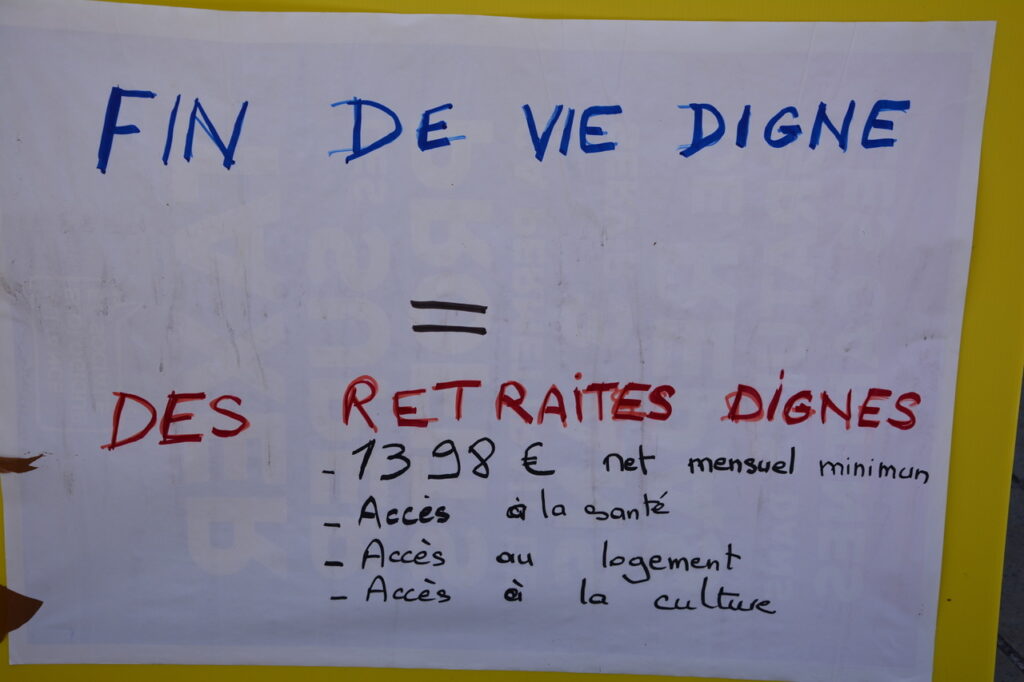 FIN DE VIE DIGNE
=
DES RETRAITES DIGNES
- 1398 € net mensuel minimun
- Accès à la santé
- Accès au logement
- Accès à la culture